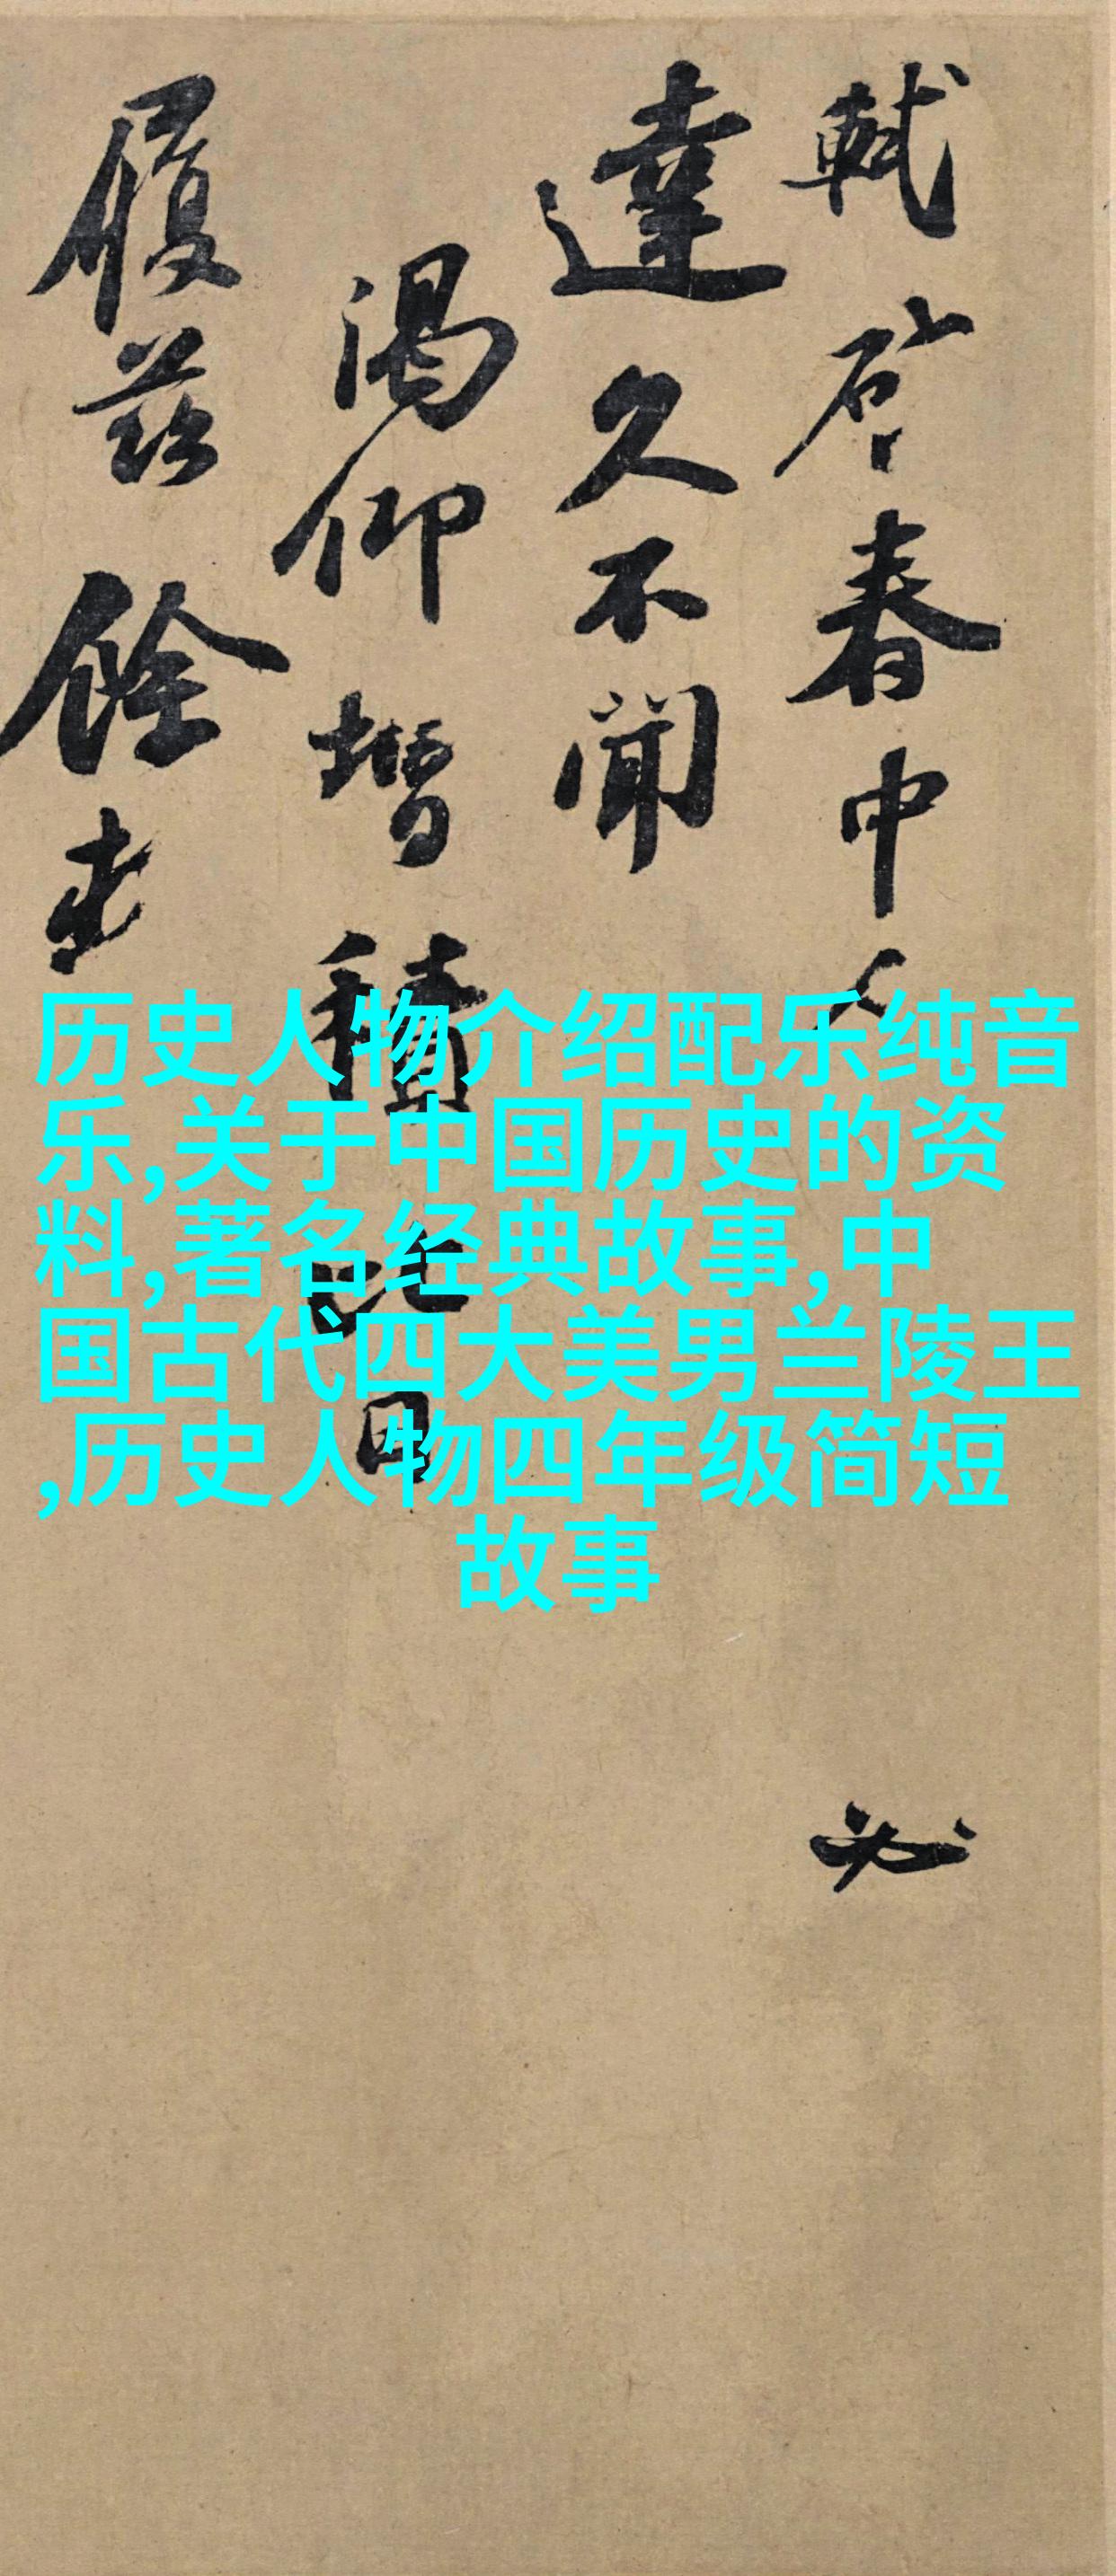 軾啓春中必
達久不聞
渴仰增積比日
履茲餘
历史人物介绍配乐纯音
乐,关于中国历史的资
料,著名经典故事,中
国古代四大美男兰陵王
,历史人物四年级简短
故事